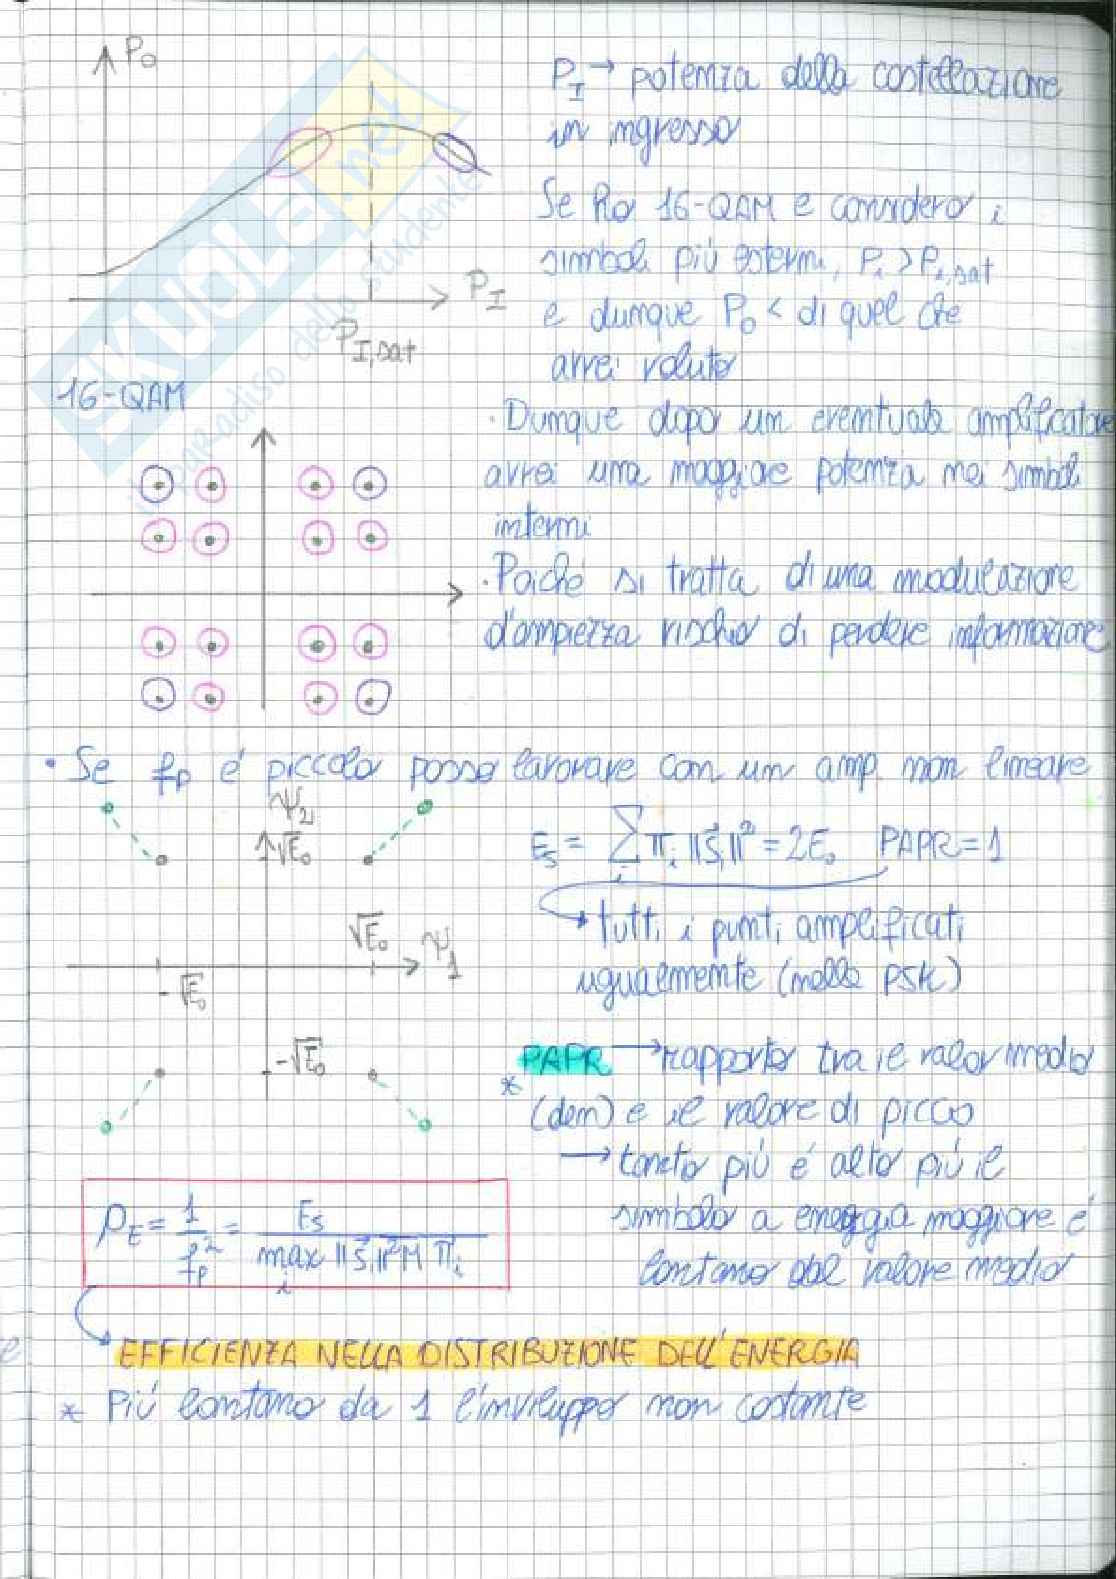 P₀
P_I → potenza della costellazione
in ingresso
Se ho 16-QAM e considero i
simboli più esterni, P_i > P_i,sat
e dunque P₀ < di quel che
avrei voluto
P_I
P_I,sat
SKUOLA.net
il paradiso dello studente
16-QAM
· Dunque dopo un eventuale amplificatore
avrei una maggiore potenza nei simboli
interni
· Poiché si tratta di una modulazione
d'ampiezza rischio di perdere informazione
• Se f_p é piccolo posso lavorare con un amp. non lineare
ψ₂
√E₀
E_s = Σ_i π_i ||s⃗_i||² = 2E₀ PAPR = 1
→ tutti i punti amplificati
ugualmente (nella PSK)
√E₀ ψ₁
-√E₀
-√E₀
* PAPR → rapporto tra il valor medio
(den) e il valore di picco
→ tanto più é alto più il
simbolo a energia maggiore é
lontano dal valore medio
ρ_E = 1/f_p² = E_s / max_i ||s⃗_i||² M π_i
EFFICIENZA NELLA DISTRIBUZIONE DELL'ENERGIA
* Più lontano da 1 l'inviluppo non costante